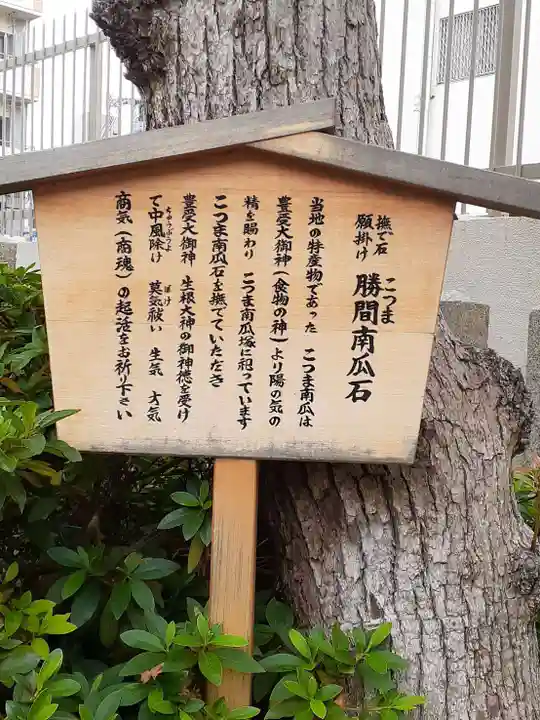 撫で石
願掛け
こつま
勝間南瓜石
当地の特産物であった こつま南瓜は
豊受大御神(食物の神)より陽の気の
精を賜わり こつま南瓜塚に祀っています
こつま南瓜石を撫でていただき
豊受大御神 生根大神の御神徳を受け
て中風除け 莫気祓い 生気 才気
ぼけ
商気(商魂)の起活をお祈り下さい